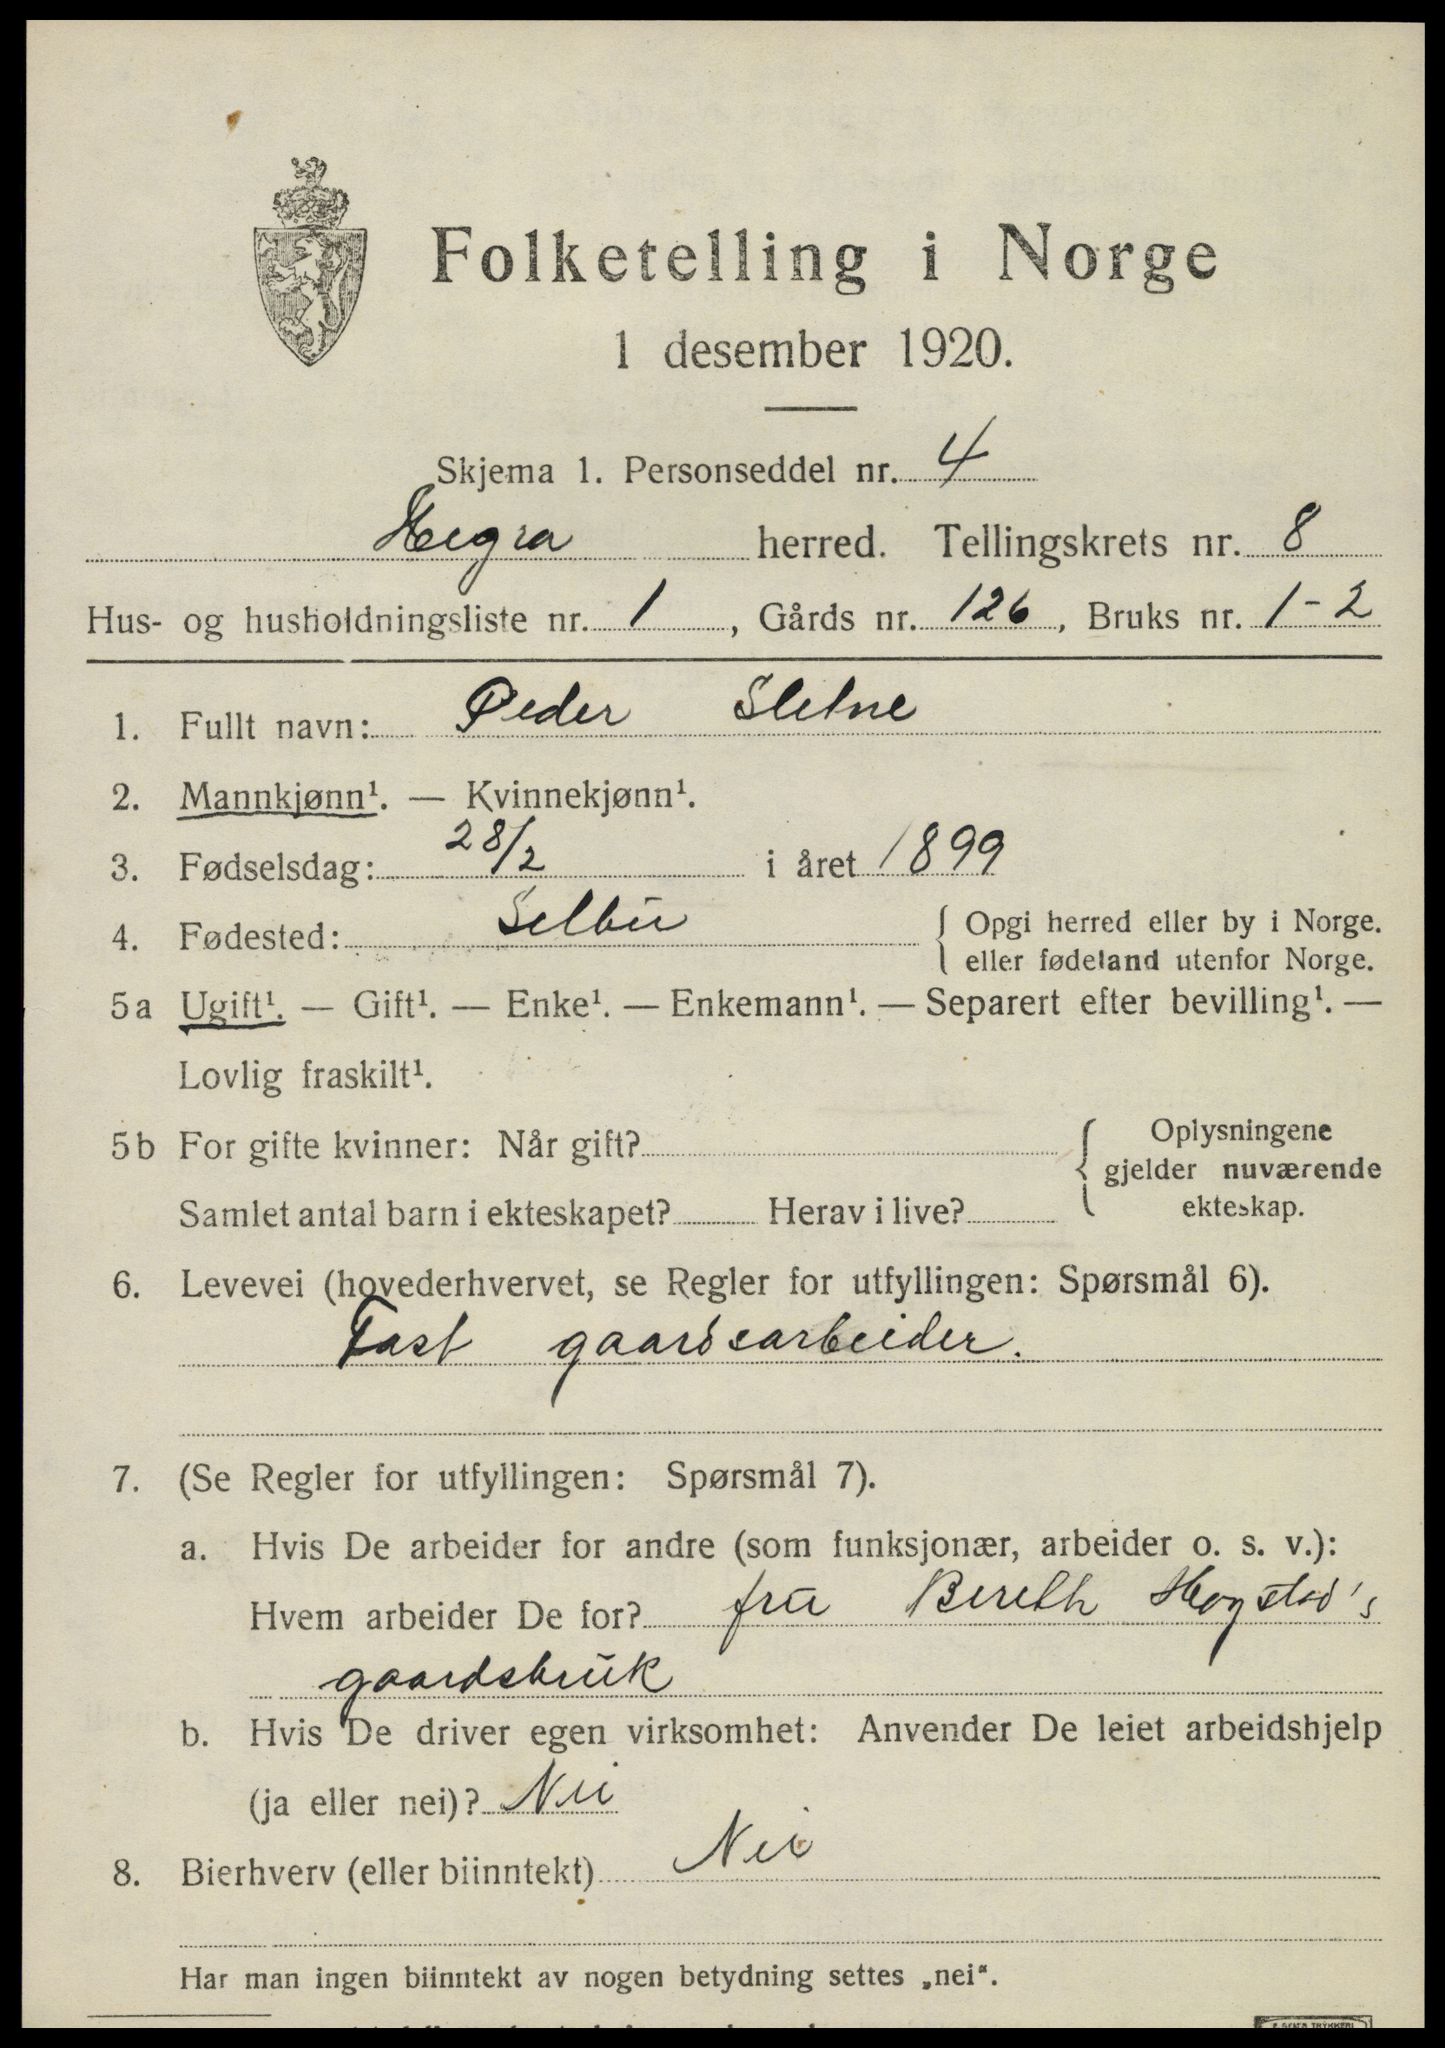 Folketelling i Norge
1 desember 1920.
Skjema 1. Personseddel nr. 4
Hegra herred. Tellingskrets nr. 8
Hus- og husholdningsliste nr. 1, Gårds nr. 126, Bruks nr. 1-2
1. Fullt navn: Peder Sletne
2. Mannkjønn¹. — Kvinnekjønn¹.
3. Fødselsdag: 28/2 i året 1899
4. Fødested: Selbu { Opgi herred eller by i Norge.
eller fødeland utenfor Norge.
5a Ugift¹. — Gift¹. — Enke¹. — Enkemann¹. — Separert efter bevilling¹. —
Lovlig fraskilt¹.
5b For gifte kvinner: Når gift? { Oplysningene
gjelder nuværende
Samlet antal barn i ekteskapet? Herav i live? ekteskap.
6. Levevei (hovederhvervet, se Regler for utfyllingen: Spørsmål 6).
Fast gaardsarbeider.
7. (Se Regler for utfyllingen: Spørsmål 7).
a. Hvis De arbeider for andre (som funksjonær, arbeider o. s. v.):
Hvem arbeider De for? fru Bereth Hogstad's
gaardsbruk
b. Hvis De driver egen virksomhet: Anvender De leiet arbeidshjelp
(ja eller nei)? Nei
8. Bierhverv (eller biinntekt) Nei
Har man ingen biinntekt av nogen betydning settes „nei".